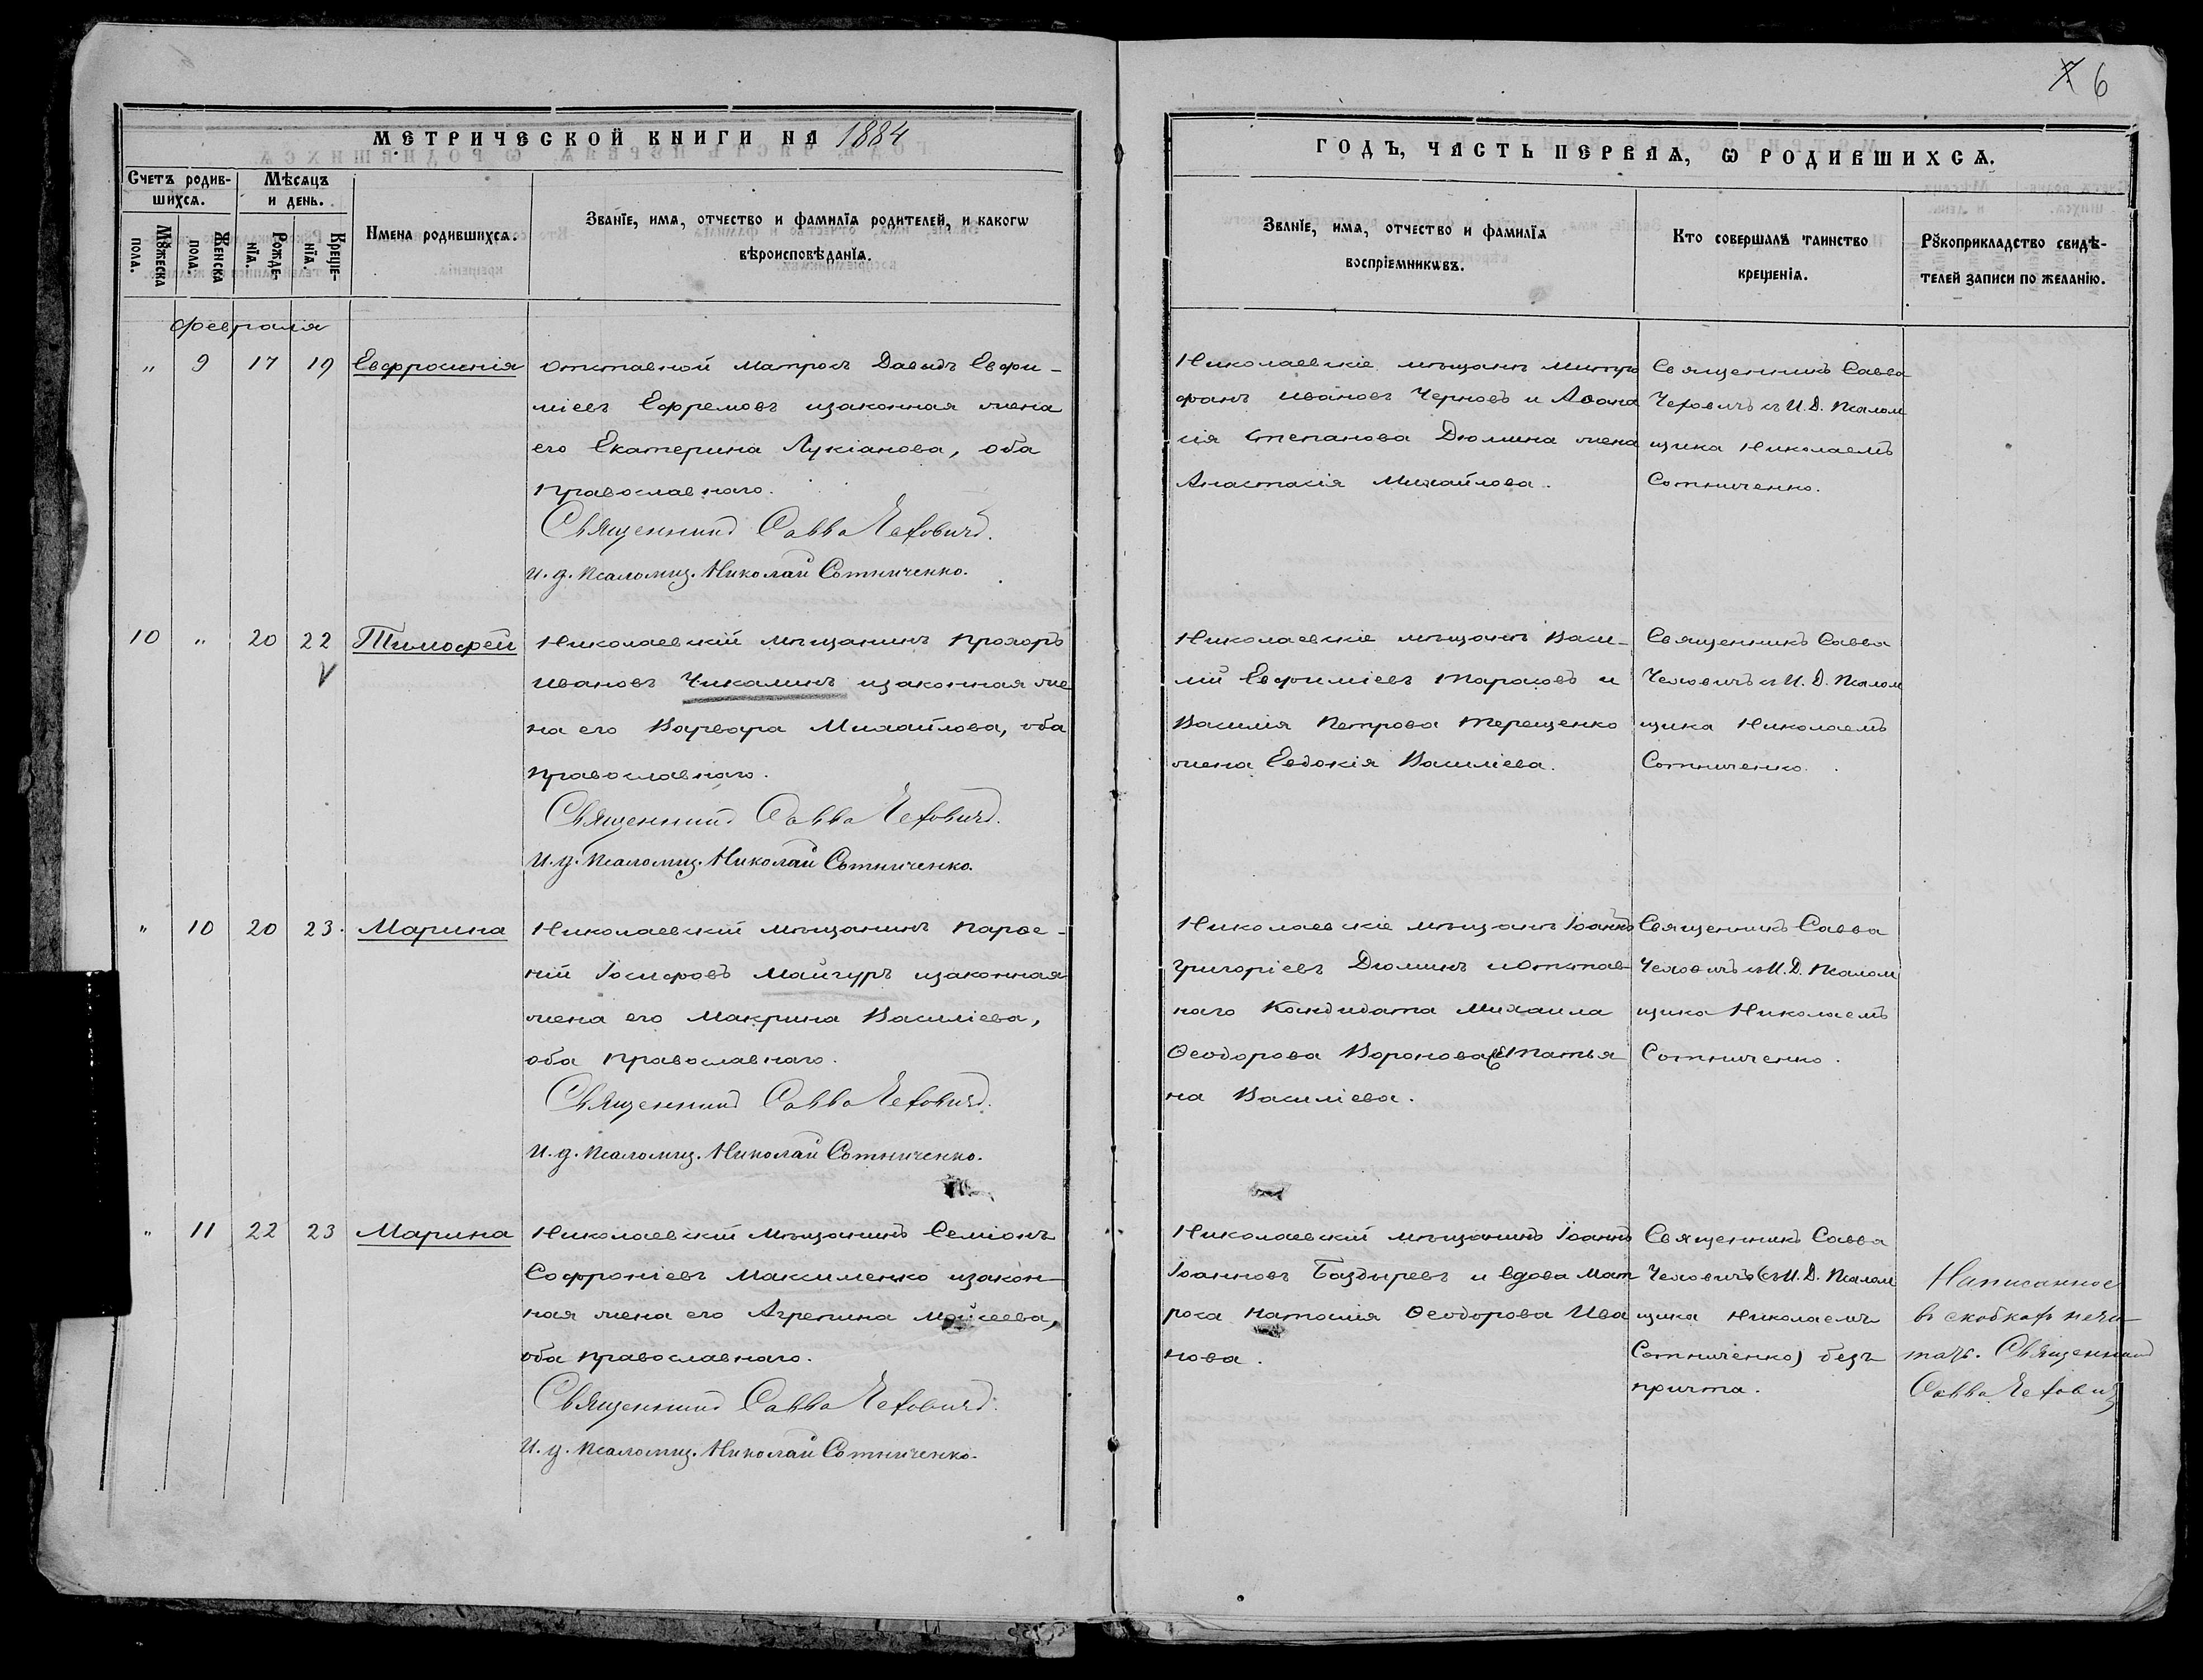 7 6
МЕТРИЧЕСКОЙ КНИГИ НА 1884
ГОДЪ, ЧАСТЬ ПЕРВАЯ, Ѡ РОДИВШИХСѦ.
Счетъ родив-
шихсѧ.
Мѣсѧцъ
и день.
Мꙋжеска
пола.
Женска
пола.
Рожде-
нїѧ.
Креще-
нїѧ.
Имена родившихсѧ.
Званїе, имѧ, отчество и фамилїѧ родителей, и какогѡ
вѣроисповѣданїѧ.
Званїе, имѧ, отчество и фамилїѧ
воспрїемникѡвъ.
Кто совершалъ таинство
крещенїѧ.
Рꙋкоприкладство свидѣ-
телей записи по желанїю.
Февраля
„ 9 17 19 Евфросинія
Отставной матросъ Давидъ Евфи-
міевъ Ефремовъ изаконная жена
его Екатерина Лукіанова, оба
православнаго.
Священникъ Савва Чехович.
И. д. псаломщ. Николай Сотниченко.
Николаевскіе мѣщане Митро
фанъ Ивановъ Черновъ и Аѳана
сія Степанова Дюмина жена
Анастасія Михайлова.
Священникъ Савва
Чеховичъ съ И. Д. Псалом
щика Николаемъ
Сотниченко.
10 „ 20 22 Тимофей
Николаевскій мѣщанинъ Прохоръ
Ивановъ Чикалинъ изаконная же
на его Варвара Михайлова, оба
православнаго.
Священникъ Савва Чехович.
И. д. псаломщ. Николай Сотниченко.
Николаевскіе мѣщане Васи-
лій Евфиміевъ Тарасовъ и
Василія Петрова Терещенко
жена Евдокія Василіева.
Священникъ Савва
Чеховичъ съ И. Д. Псалом
щика Николаемъ
Сотниченко.
„ 10 20 23. Марина
Николаевскій мѣщанинъ Парѳе-
ній Іосифовъ Майгуръ изаконная
жена его Макрина Василіева,
оба православнаго.
Священникъ Савва Чехович.
И. д. псаломщ. Николай Сотниченко.
Николаевскіе мѣщане Іоаннъ
Григоріевъ Дюминъ и Отстав-
наго Кандидата Михаила
Ѳеодорова Воронова Татья
на Василіева.
Священникъ Савва
Чеховичъ съ И. Д. Псалом
щика Николаемъ
Сотниченко.
„ 11 22 23 Марина
Николаевскій мѣщанинъ Семіонъ
Софроніевъ Максименко изакон-
ная жена его Агрепина Мойсеева,
оба православнаго.
Священникъ Савва Чехович.
И. д. псаломщ. Николай Сотниченко.
Николаевскій мѣщанинъ Іоаннъ
Іоанновъ Баздыревъ и вдова мат
роса Наталія Ѳеодорова Ива
нова.
Священникъ Савва
Чеховичъ (съ И. Д. Псалом
щика Николаемъ
Сотниченко) безъ
причта.
Написанное
въ скобкахъ нечи-
тать. Священникъ
Савва Чехович